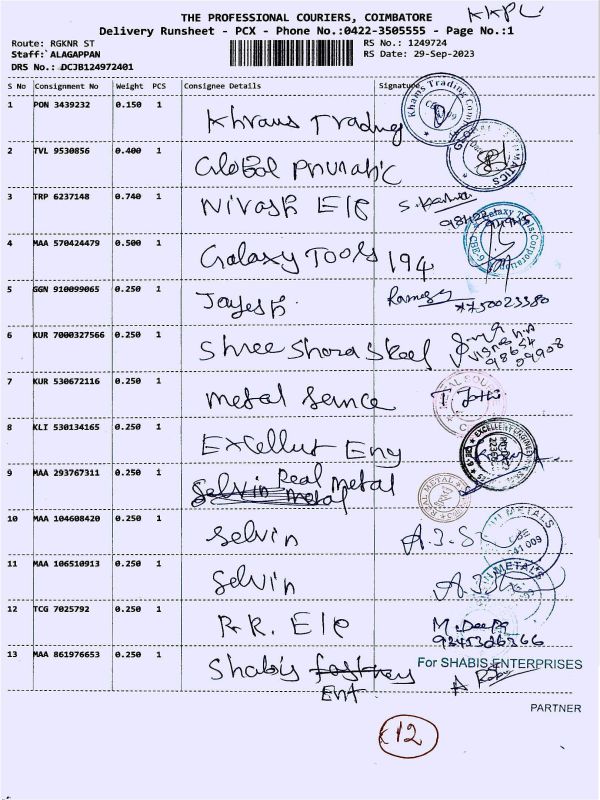 KKPL
THE PROFESSIONAL COURIERS, COIMBATORE
Delivery Runsheet - PCX - Phone No.:0422-3505555 - Page No.:1
Route: RGKNR ST
RS No.: 1249724
Staff: ALAGAPPAN
RS Date: 29-Sep-2023
DRS No.: DCJB124972401
S No Consignment No Weight PCS Consignee Details Signature
1 PON 3439232 0.150 1 Khrans Trading
2 TVL 9530856 0.400 1 Global Pnumatic
3 TRP 6237148 0.740 1 Nivash Ele
4 MAA 570424479 0.500 1 Galaxy Tools 194
5 GGN 910099065 0.250 1 Jayesh
6 KUR 7000327566 0.250 1 Shree Shora Steel
7 KUR 530672116 0.250 1 Metal Sence
8 KLI 530134165 0.250 1 Excellent Eng
9 MAA 293767311 0.250 1 Real Metal
10 MAA 104608420 0.250 1 Selvin
11 MAA 106510913 0.250 1 Selvin
12 TCG 7025792 0.250 1 R.R. Ele M. Deepa
13 MAA 861976653 0.250 1 Shabis
Ent
For SHABIS ENTERPRISES
PARTNER
12